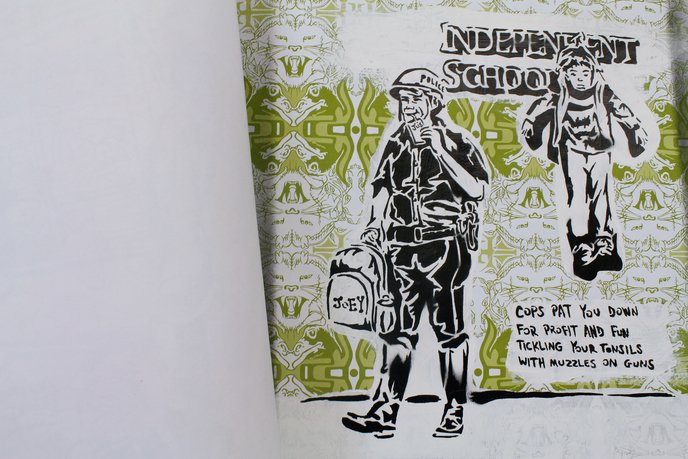 INDEPENDENT
SCHOOL
POLICE
JOEY
COPS PAT YOU DOWN
FOR PROFIT AND FUN
TICKLING YOUR TONSILS
WITH MUZZLES ON GUNS